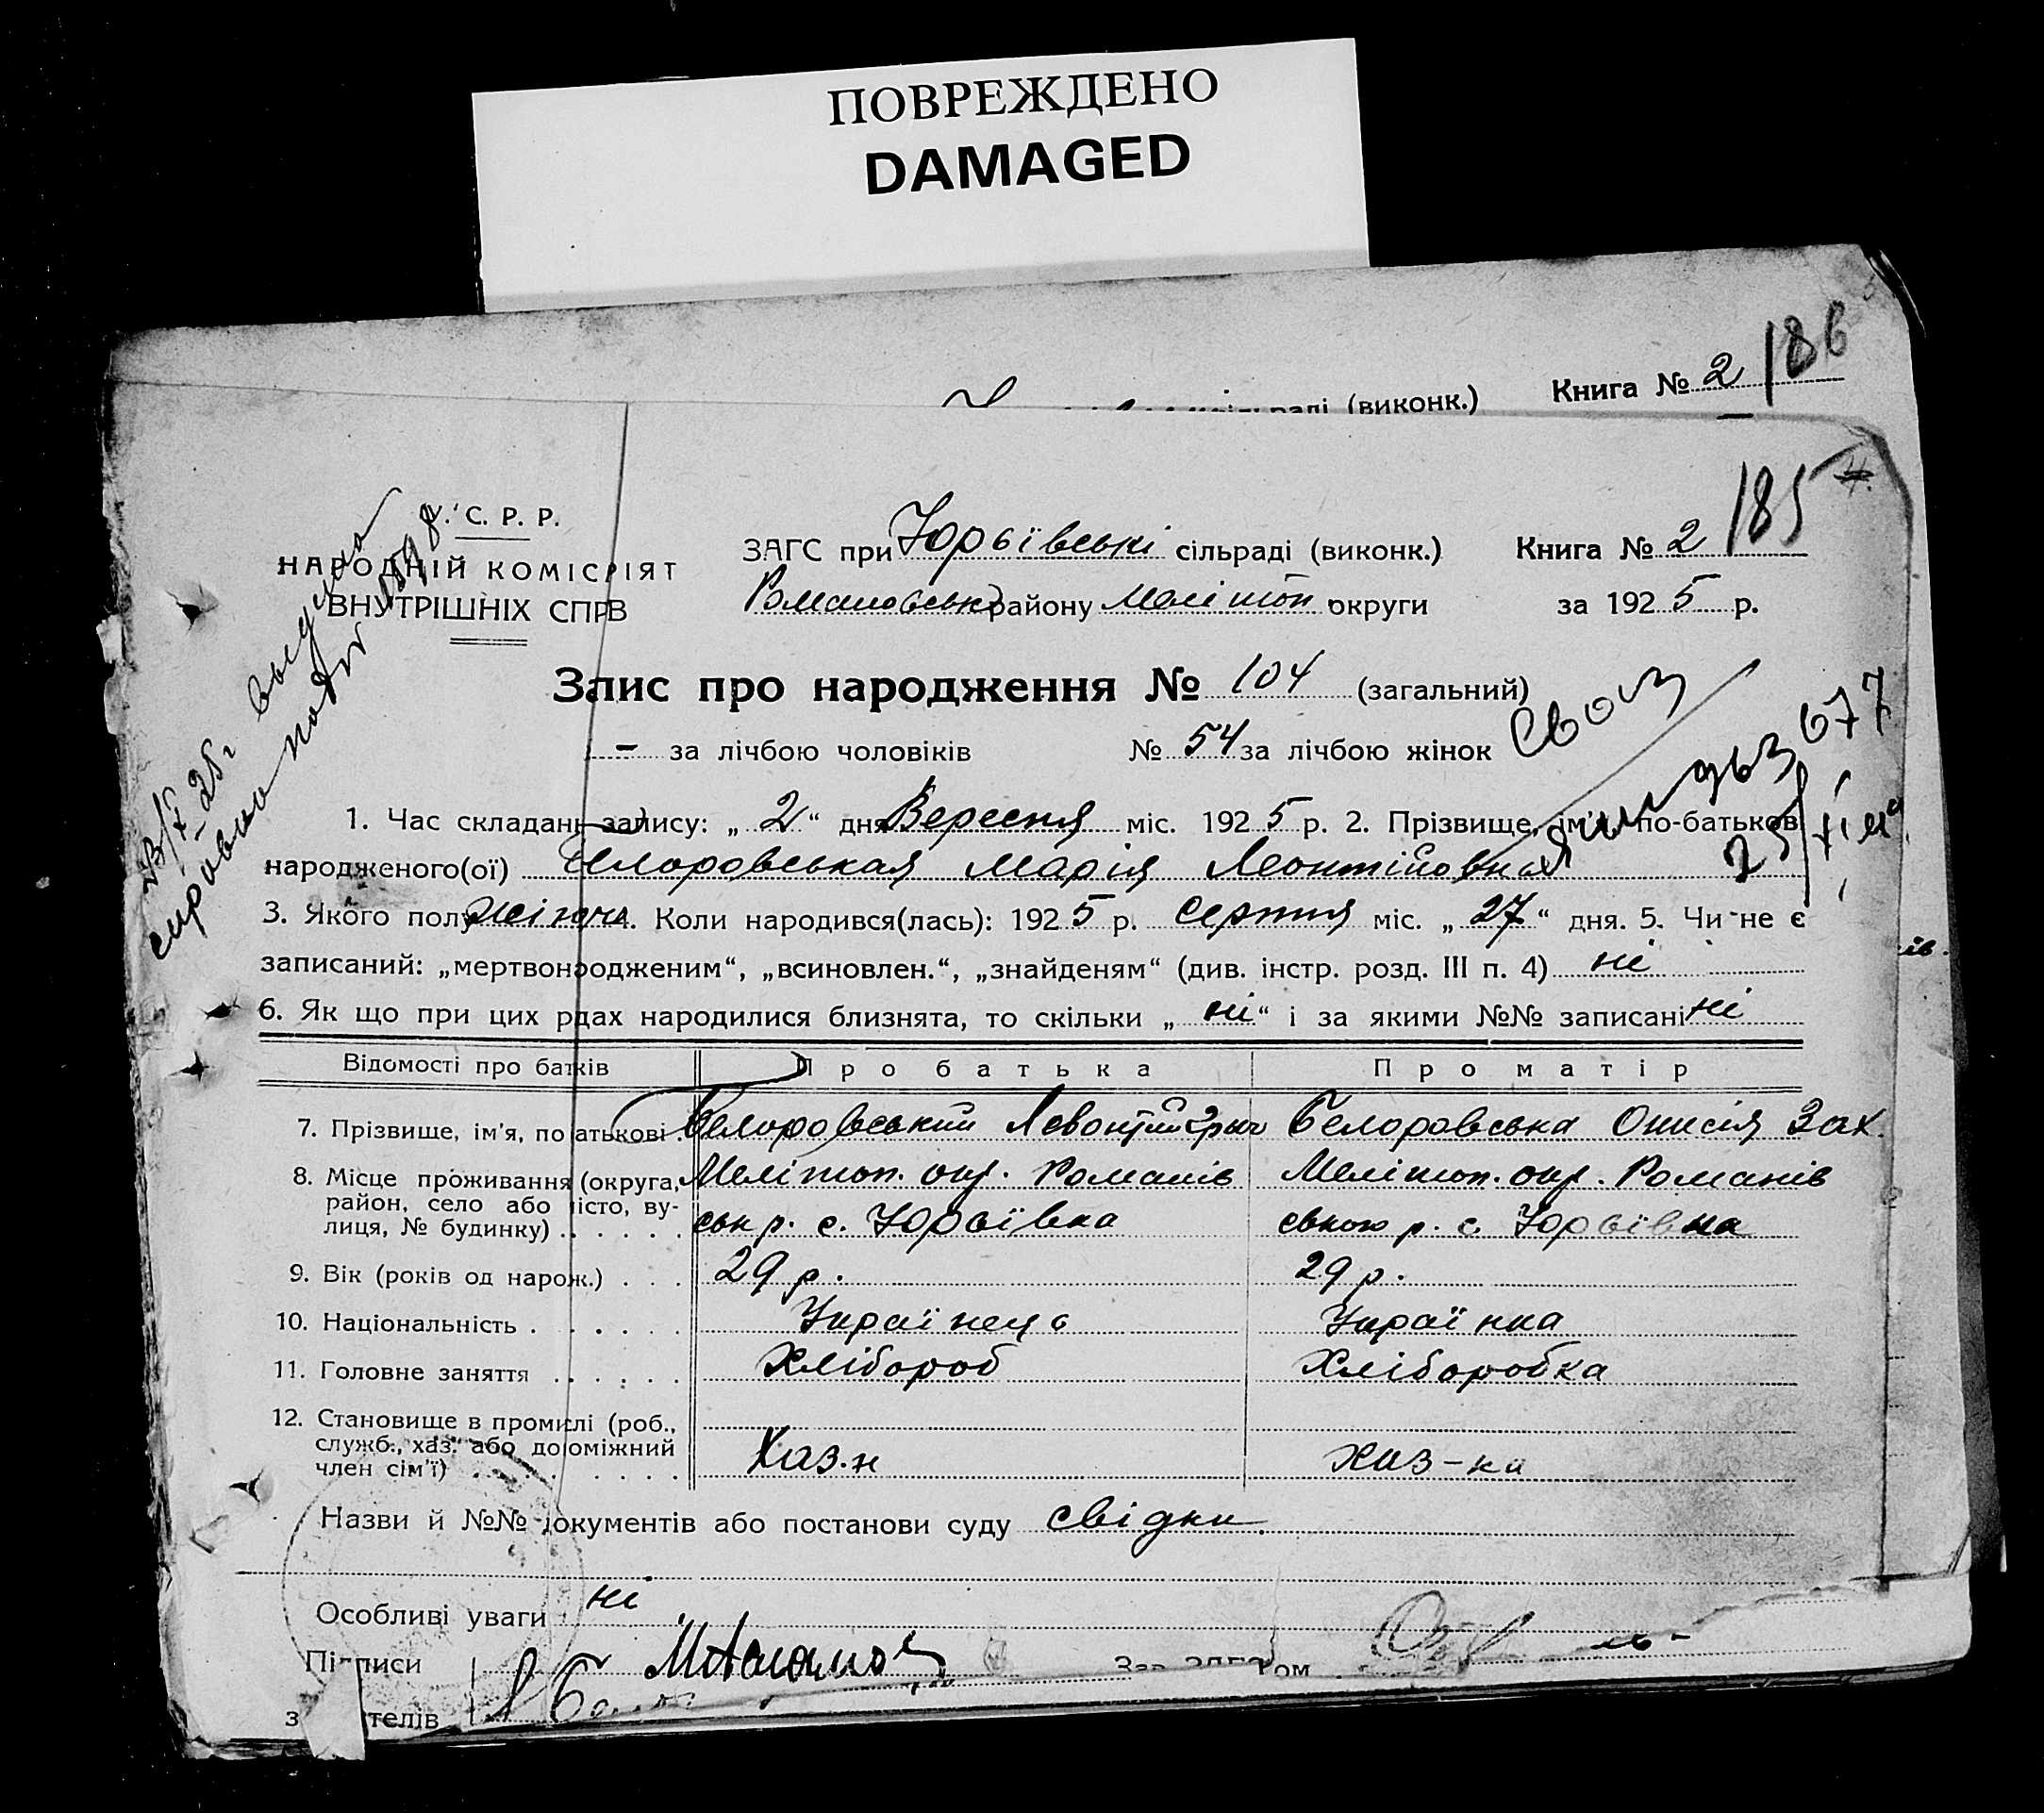 ПОВРЕЖДЕНО
DAMAGED
сільраді (виконк.) Книга № 2 186
У. С. Р. Р.
НАРОДНІЙ КОМІСРІЯТ
ВНУТРІШНІХ СПРВ
ЗАГС при Юрьївські сільраді (виконк.) Книга № 2 185
Романовськ району Мелітоп. округи за 1925 р.
Запис про народження № 104 (загальний)
– за лічбою чоловіків № 54 за лічбою жінок
1. Час складані запису: „ 2 “ дня Вересня міс. 1925 р. 2. Прізвище, ім'я, по-батьков
народженого(ої) Белоровськая Марія Леонтійовна
3. Якого полу жіноч. 4. Коли народився(лась): 1925 р. Серпня міс. „ 27 “ дня. 5. Чи не є
записаний: „мертвонародженим“, „всиновлен.“, „знайденям“ (див. інстр. розд. III п. 4) ні
6. Як що при цих рдах народилися близнята, то скільки „ ні “ і за якими №№ записані ні
Відомості про батків Про батька Про матір
7. Прізвище, ім'я, по батькові . Белоровський Левонтій Григ Белоровська Онисія Зах.
8. Місце проживання (округа, район, село або місто, вулиця, № будинку) . . . . . .
Мелітоп. окр. Романів Мелітоп. окр. Романів
ськ р. с. Юрьївка ською р. с. Юрьївка
9. Вік (років од нарож.) . . . 29 р. 29 р.
10. Національність . . . . . . Українець Українка
11. Головне заняття . . . . . . Хлібороб Хліборобка
12. Становище в промислі (роб., служб., хаз. або допоміжний член сім'ї) . . . . . . . . Хаз.н хаз-ка
Назви й №№ документів або постанови суду свідки.
Особливі уваги ні
Підписи